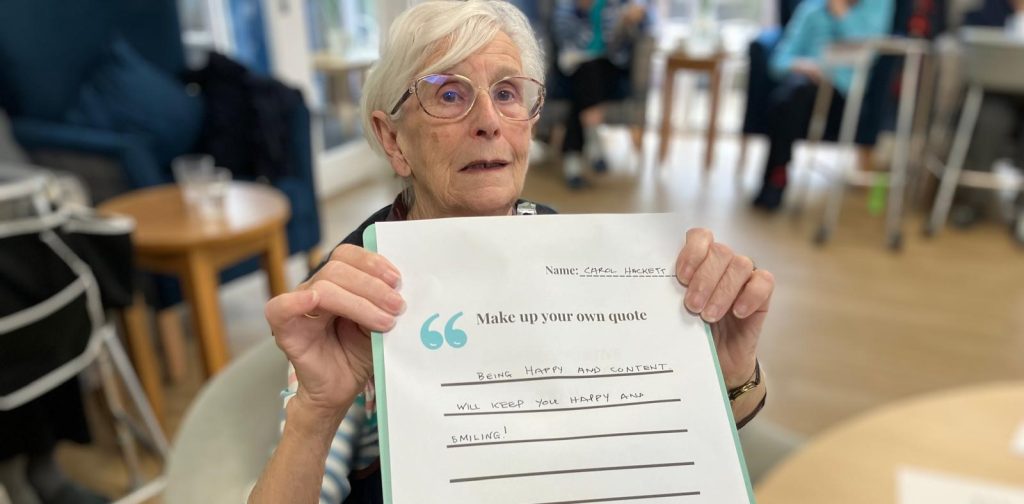 Name: CAROL HACKETT
Make up your own quote
BEING HAPPY AND CONTENT
WILL KEEP YOU HAPPY AND
SMILING!